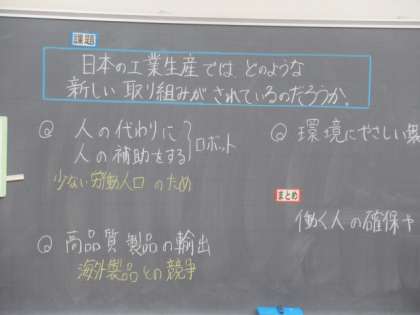 課題
日本の工業生産では どのような
新しい 取り組みが されているのだろうか。
◎ 人の代わりに
人の補助をする
ロボット
少ない労働人口 のため
◎ 高品質 製品の輸出
海外製品との競争
◎ 環境にやさしい
まとめ
働く人の確保や